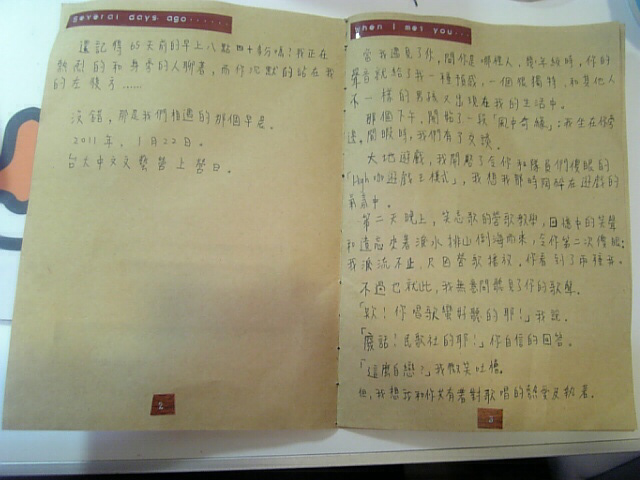 several days ago......
還記得65天前的早上八點四十多分嗎？我正在
熱烈的和身旁的人聊著，而你沉默的站在我
的左後方......
沒錯，那是我們相遇的那個早晨。
2011年，1月22日。
台大中文文藝營上營日。
2
when i met you...
當我遇見了你，問你是哪裡人，幾年級時，你的
聲音就給了我一種預感，一個很獨特，和其他人
不一樣的男孩又出現在我的生活中。
那個下午，開始了一段「風中奇緣」：我坐在你旁
邊，閒暇時，我們有了交談。
大地遊戲，我開啟了令你和隊員們傻眼的
「High 咖遊戲王模式」，我想我那時陶醉在遊戲的
氣氛中。
第二天晚上，笑忘歌的營歌教學，回憶中的笑聲
和遺憾夾著淚水排山倒海而來，令你第二次傻眼：
我淚流不止，只因營歌
不過也就此，我無意間聽見了你的歌聲。
「欸！你唱歌蠻好聽的耶！」我說。
「廢話！民歌社的耶！」你自信的回答。
「這麼自戀？」我微笑吐槽。
但，我想我和你共有著對歌唱的熱愛及執著。
3